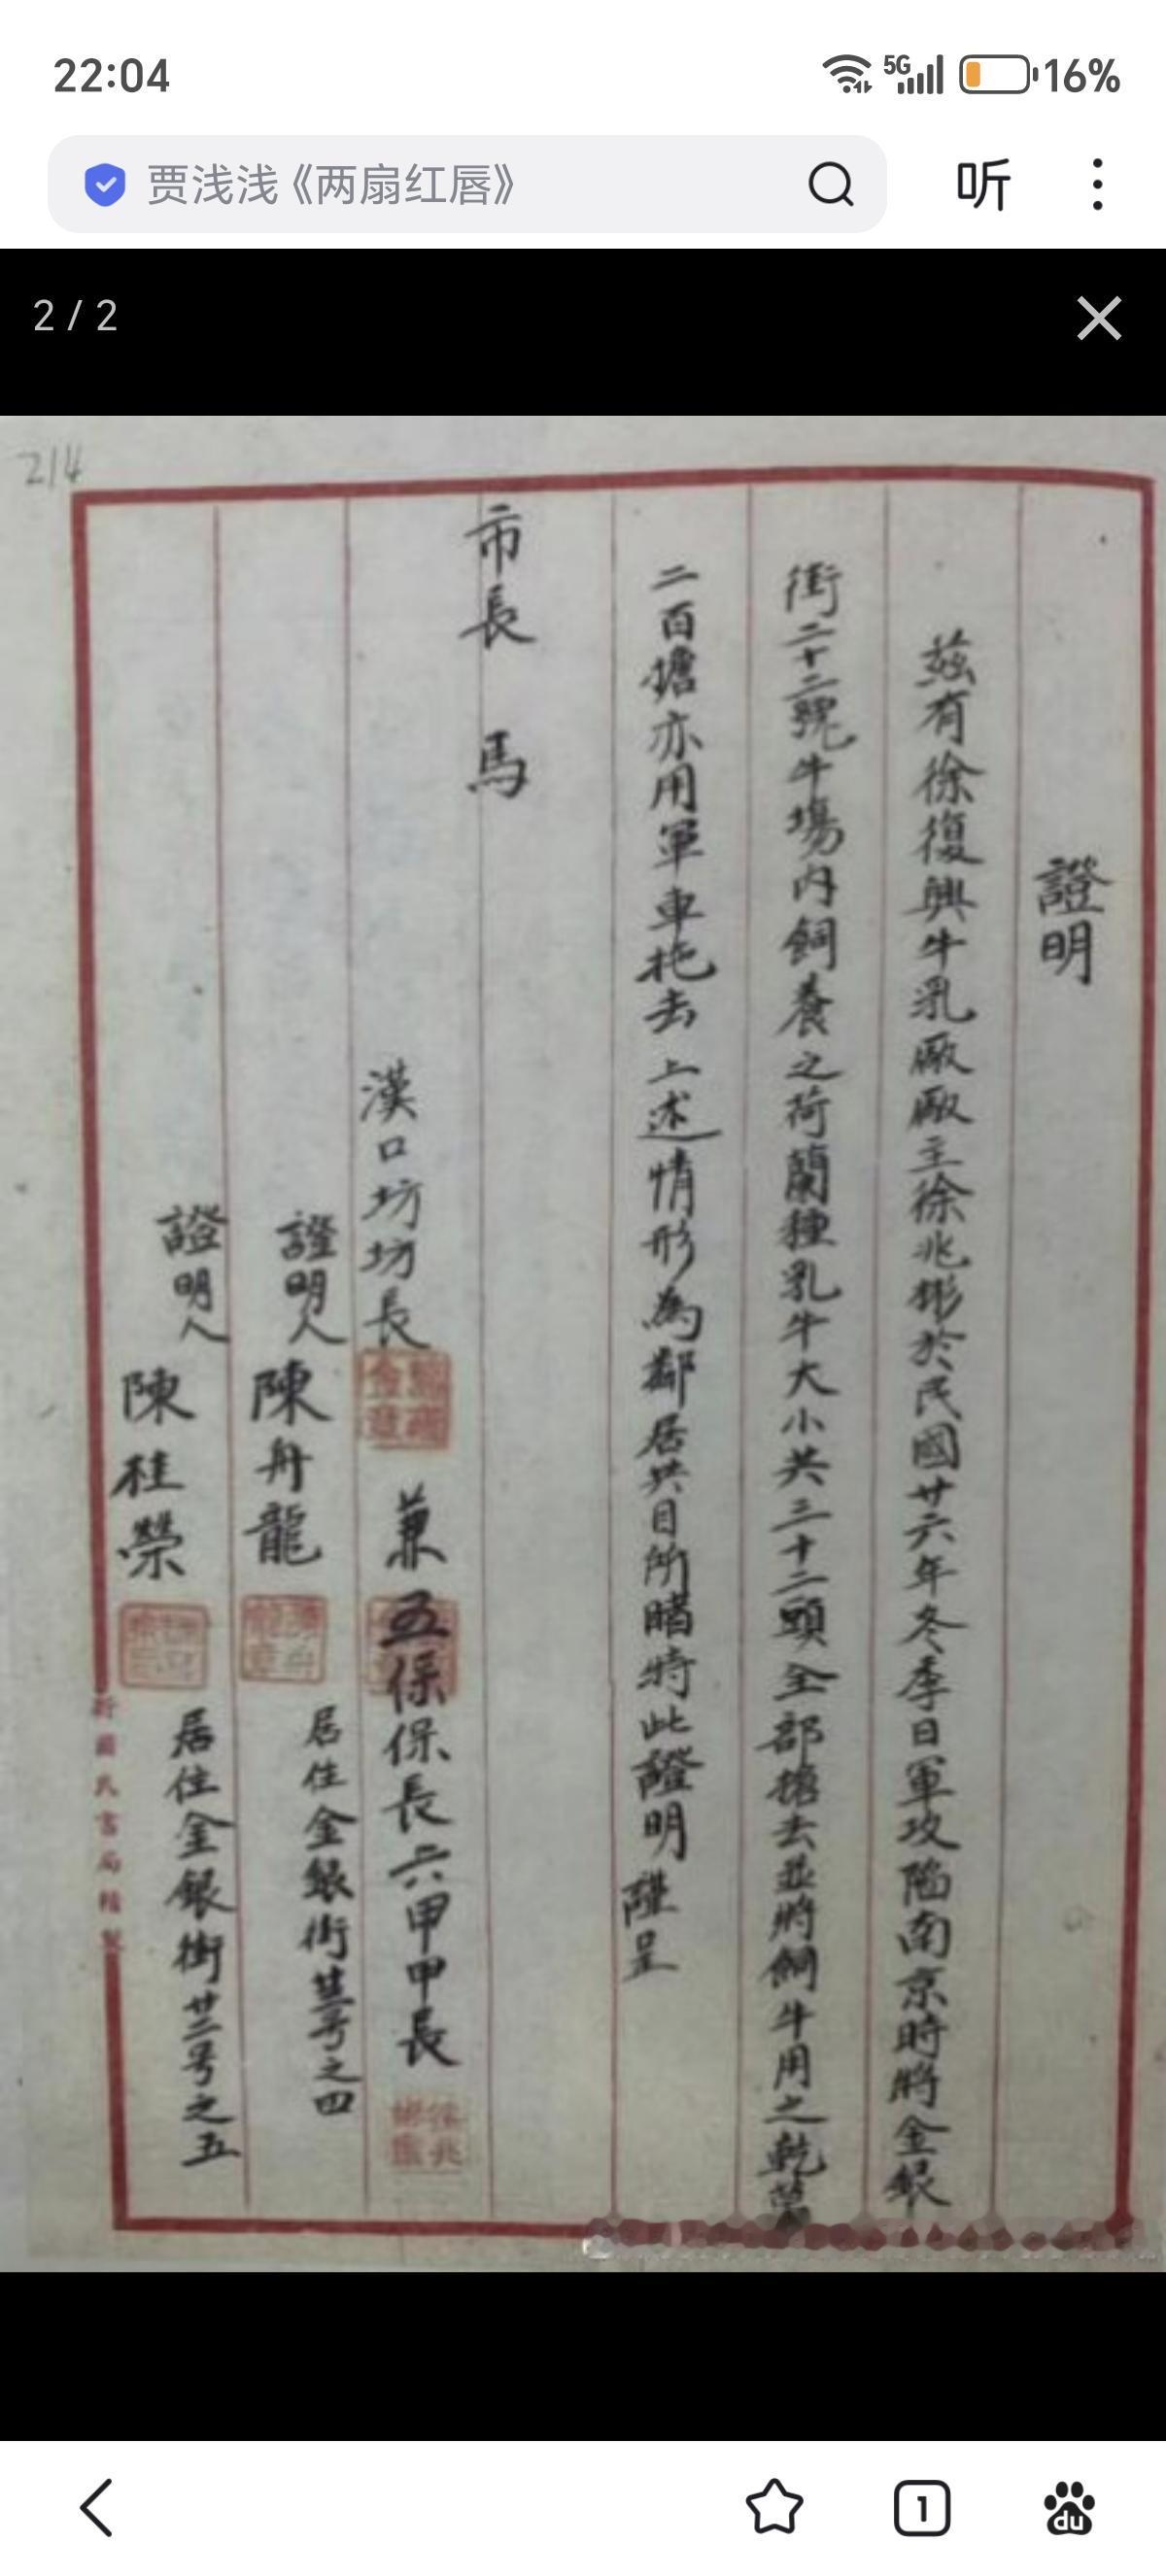 22:04
5G
16%
贾浅浅《两扇红唇》
听
2 / 2
214
證明
茲有徐復興牛乳廠廠主徐兆彬於民國廿六年冬季日軍攻陷南京時將金銀
街二十二號牛場內飼養之荷蘭種乳牛大小共三十二頭全部搶去並將飼牛用之乾草
二百擔亦用軍車拖去上述情形為鄰居共目所睹特此證明 謹呈
市長 馬
漢口坊坊長 兼五保保長六甲甲長
證明人 陳舟龍 居住金銀街廿二号之四
證明人 陳桂榮 居住金銀街廿二号之五
新國民書局精製
1
du